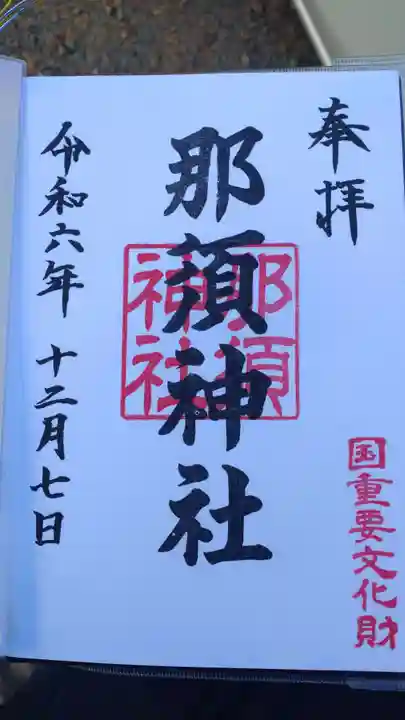 奉拝
国重要文化財
那須神社
那須神社
令和六年 十二月七日